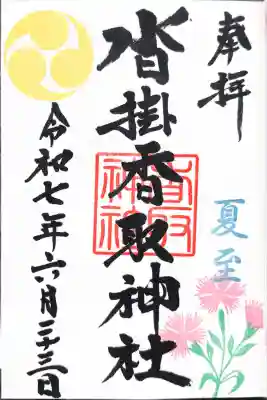 奉拝
夏至
沓掛香取神社
香取神社
令和七年六月二十三日